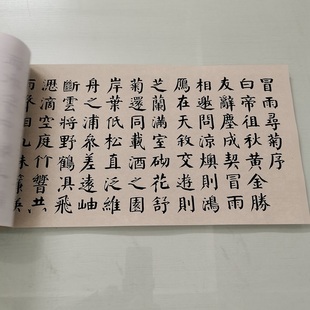 冒雨尋菊序
白帝徂秋黄金勝
友辭塵成契冒雨
相邀問涼燠則鴻
鴈在天敘交遊則
芝蘭滿室砌花舒
菊還同載酒之園
岸葉低松直泛維
舟之浦參差遠岫
斷雲將野鶴俱飛
滴空庭竹響共